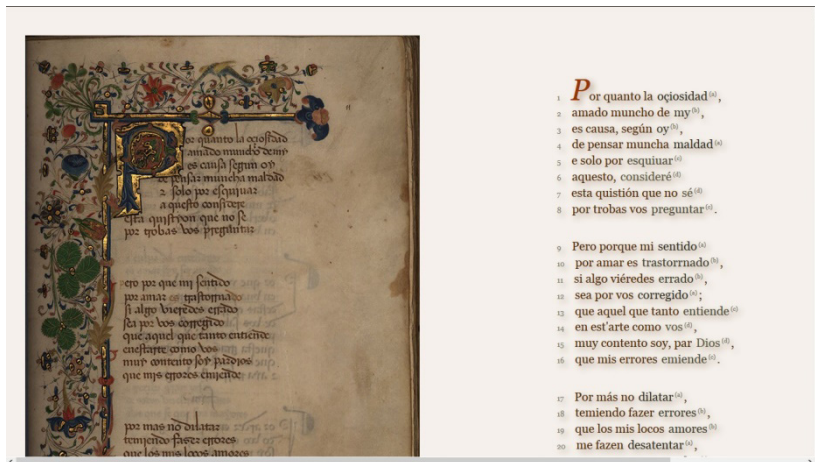 or quanto la oçiosidad
amado muncho de my
es causa segun oy
de pensar muncha maldad
z solo por esquiuar
a questo considere
esta quistyon que no se
por trobas vos preguntar
ero por que mi sentido
por amar es trastornado
si algo vieredes errado
sea por vos corregido
que aquel que tanto entiende
enestarte como vos
muy contento soy pardios
que mis errores emiende
por mas no dilatar
temiendo faser errores
que los mis locos amores
1 Por quanto la oçiosidad(a),
2 amado muncho de my(b),
3 es causa, según oy(b),
4 de pensar muncha maldad(a)
5 e solo por esquiuar(c)
6 aquesto, consideré(d)
7 esta quistión que no sé(d)
8 por trobas vos preguntar(c).
9 Pero porque mi sentido(a)
10 por amar es trastorrnado(b),
11 si algo viéredes errado(b),
12 sea por vos corregido(a);
13 que aquel que tanto entiende(c)
14 en est'arte como vos(d),
15 muy contento soy, par Dios(d),
16 que mis errores emiende(c).
17 Por más no dilatar(a),
18 temiendo fazer errores(b),
19 que los mis locos amores(b)
20 me fazen desatentar(a),